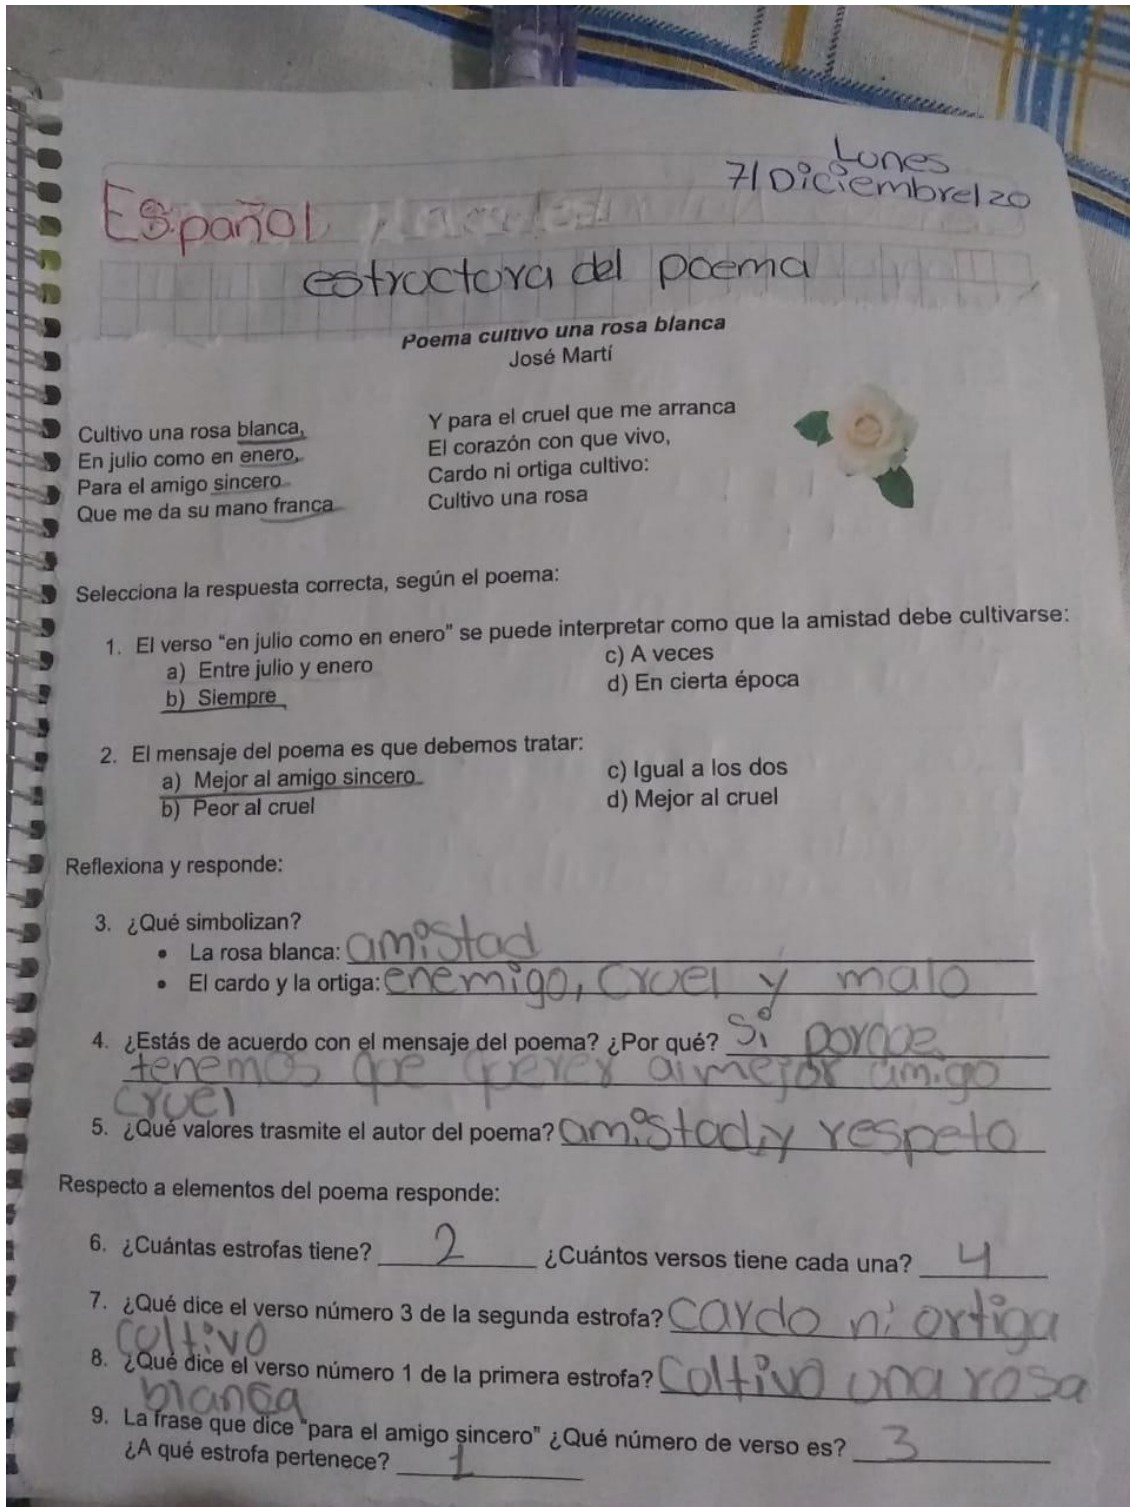 Lunes
7/Diciembre/20
Español
estructura del poema
Poema cultivo una rosa blanca
José Martí
Cultivo una rosa blanca,
En julio como en enero,
Para el amigo sincero
Que me da su mano franca
Y para el cruel que me arranca
El corazón con que vivo,
Cardo ni ortiga cultivo:
Cultivo una rosa
Selecciona la respuesta correcta, según el poema:
1. El verso “en julio como en enero” se puede interpretar como que la amistad debe cultivarse:
a) Entre julio y enero
c) A veces
b) Siempre
d) En cierta época
2. El mensaje del poema es que debemos tratar:
a) Mejor al amigo sincero
c) Igual a los dos
b) Peor al cruel
d) Mejor al cruel
Reflexiona y responde:
3. ¿Qué simbolizan?
• La rosa blanca: amistad
• El cardo y la ortiga: enemigo, cruel y malo
4. ¿Estás de acuerdo con el mensaje del poema? ¿Por qué? Si porque
tenemos que querer al mejor amigo
cruel
5. ¿Qué valores trasmite el autor del poema? amistad, y respeto
Respecto a elementos del poema responde:
6. ¿Cuántas estrofas tiene? 2 ¿Cuántos versos tiene cada una? 4
7. ¿Qué dice el verso número 3 de la segunda estrofa? cardo ni ortiga
cultivo
8. ¿Qué dice el verso número 1 de la primera estrofa? Coltivo una rosa
blanca
9. La frase que dice "para el amigo sincero" ¿Qué número de verso es? 3
¿A qué estrofa pertenece? 1